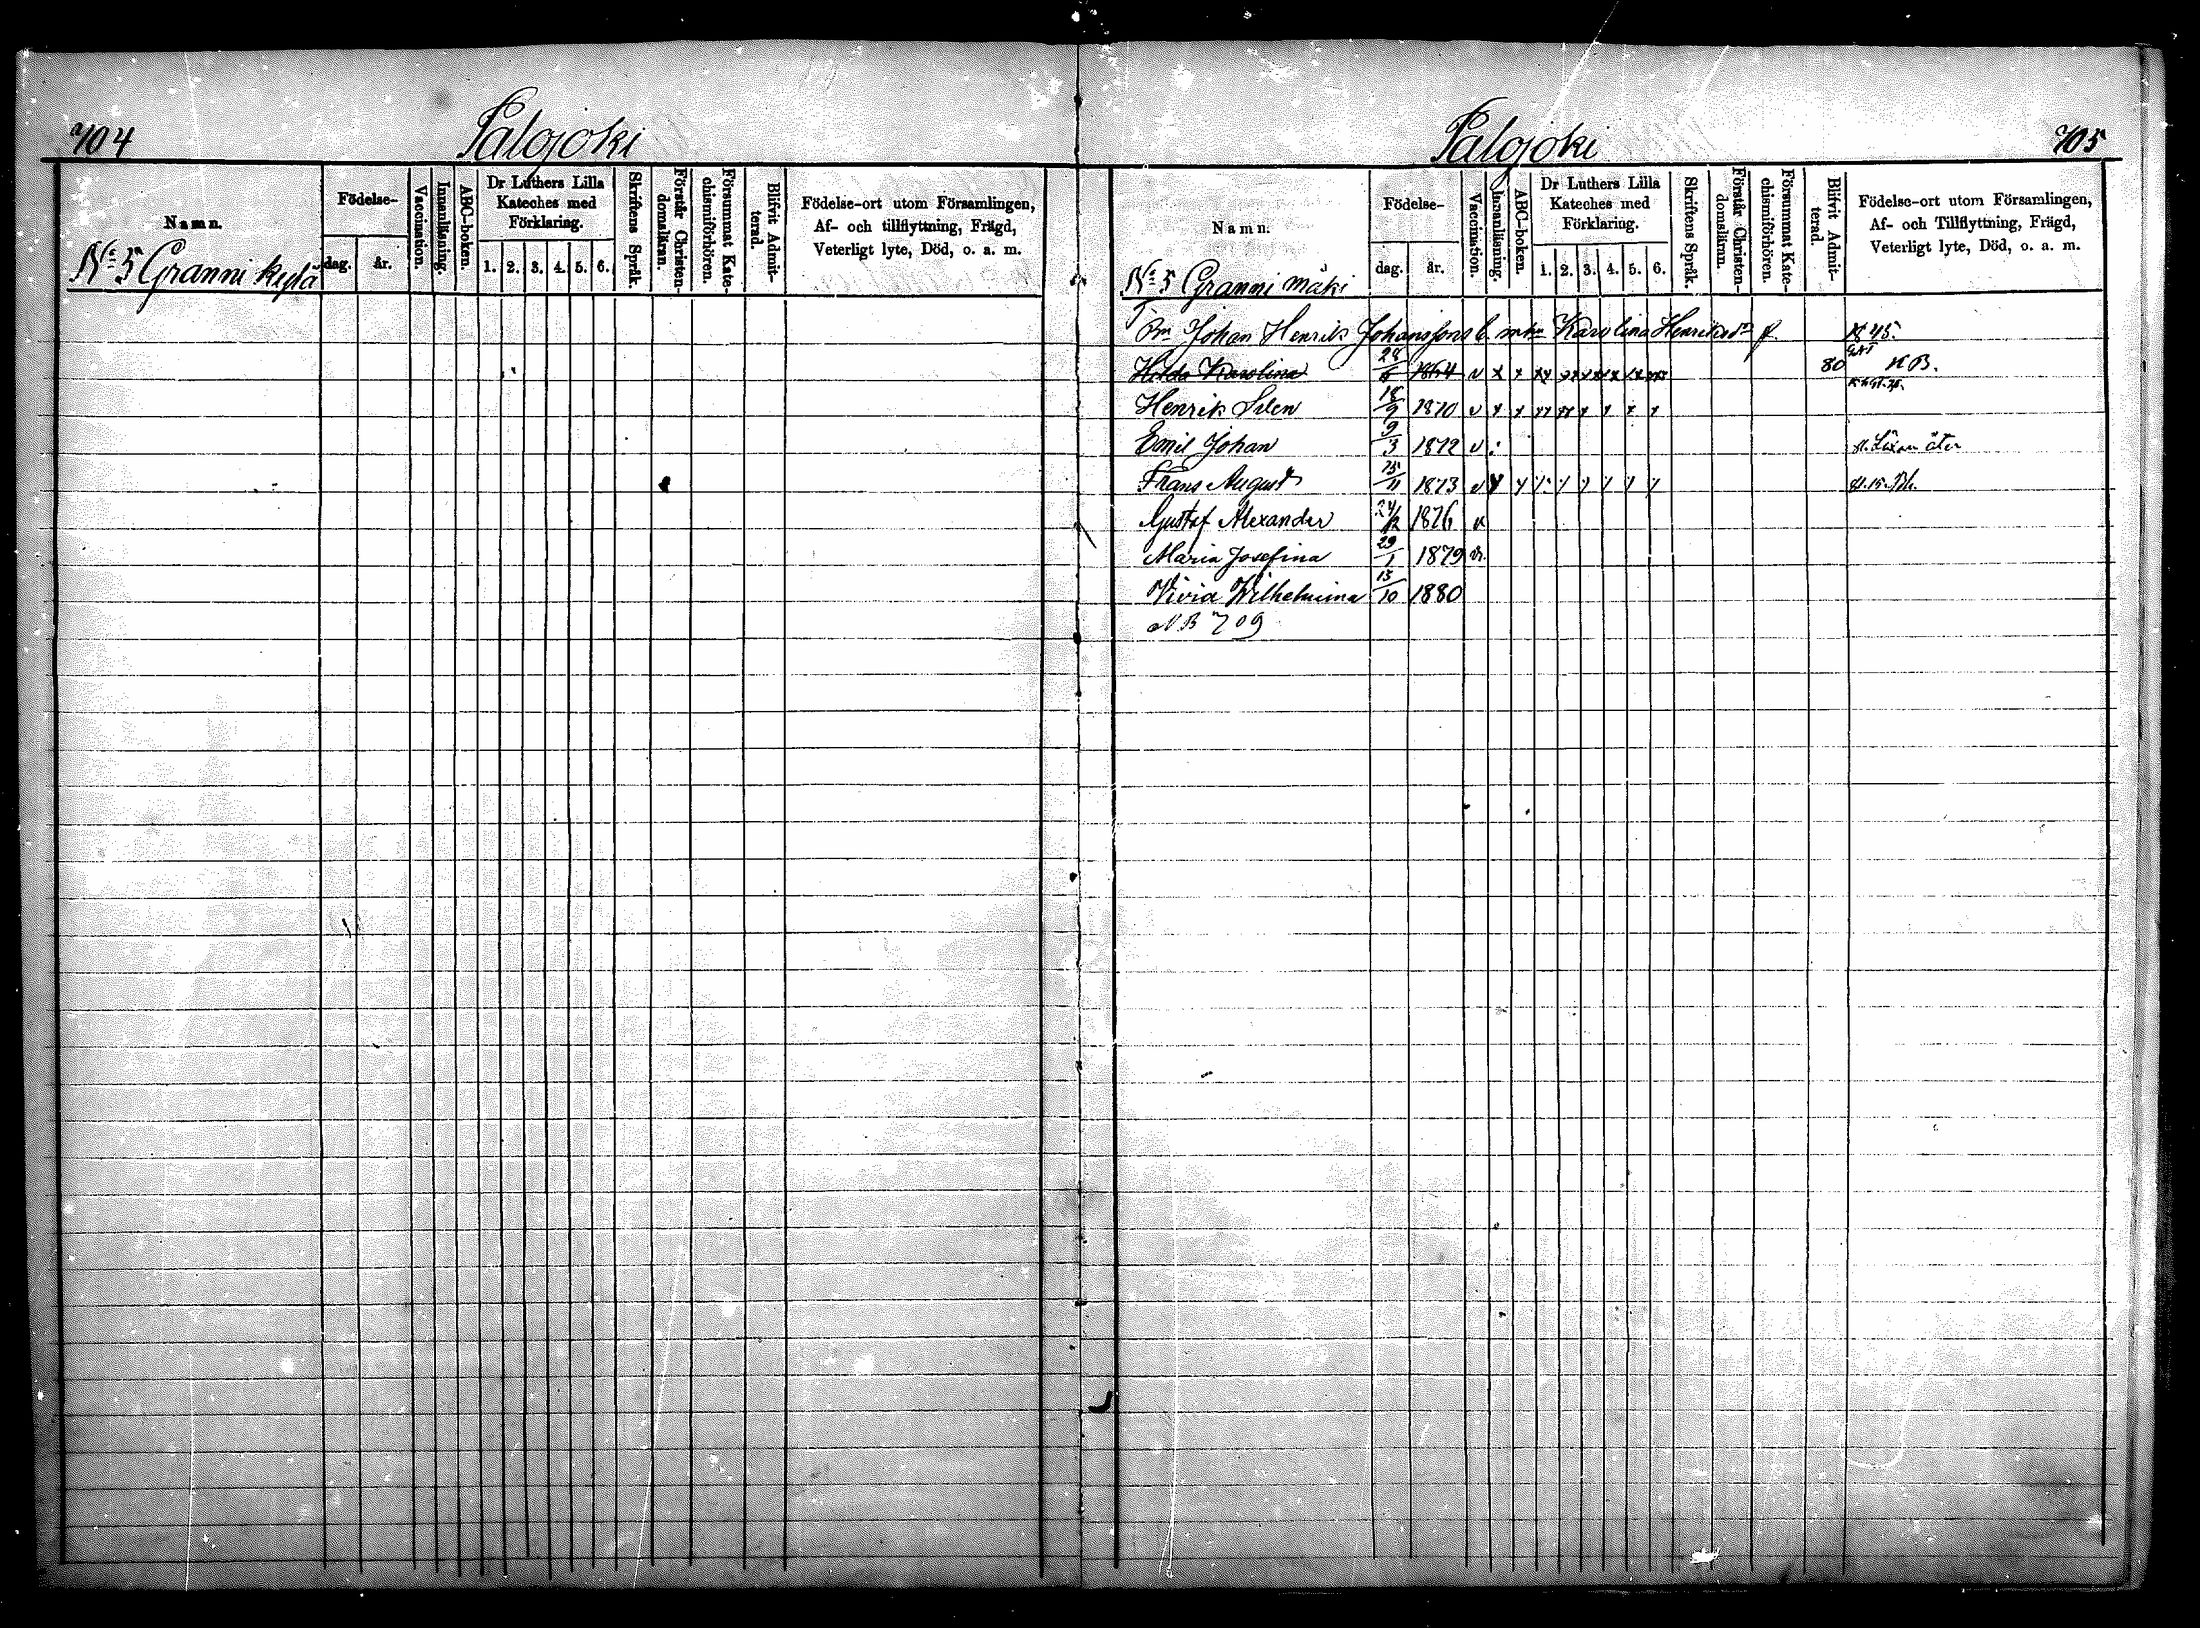 704
Palojoki
Namn.
Födelse-
dag.
år.
Vaccination.
Innanläsning.
ABC-boken.
Dr Luthers Lilla
Kateches med
Förklaring.
1. 2. 3. 4. 5. 6.
Skriftens Språk.
Förstår Christen-
domsläran.
Försummat Kate-
chismiförhören.
Blifvit Admit-
terad.
Födelse-ort utom Församlingen,
Af- och tillflyttning, Frägd,
Veterligt lyte, Död, o. a. m.
No 5 Granni kylä
Palojoki
705
Namn.
Födelse-
dag.
år.
Vaccination.
Innanläsning.
ABC-boken.
Dr Luthers Lilla
Kateches med
Förklaring.
1. 2. 3. 4. 5. 6.
Skriftens Språk.
Förstår Christen-
domsläran.
Försummat Kate-
chismiförhören.
Blifvit Admit-
terad.
Födelse-ort utom Församlingen,
Af- och Tillflyttning, Frägd,
Veterligt lyte, Död, o. a. m.
No 5 Granni mäki
Johan Henrik Johansson Karolina Henriksdr
Hilda Karolina 1864 v x x 80 KB.
Henrik 18/9 1870 v x x
Emil Johan 9/3 1872 v
Frans August 25/11 1873 v
Gustaf Alexander 24/12 1876 v
Maria Josefina 29/1 1879 v.
Vivia Wilhelmina 13/10 1880
NB 709